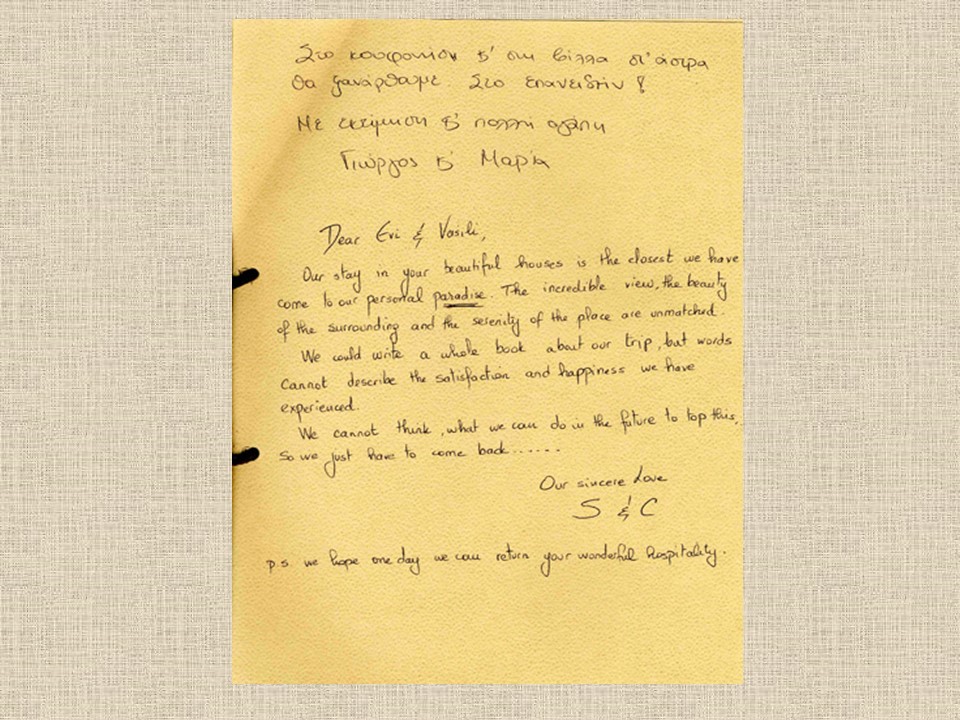 Στο κουφονήσι κ' στη βίλλα στ' άστρα
θα ξανάρθαμε. Στο επανειδείν!
Με εκτίμηση κ' πολλή αγάπη
Γιώργος κ' Μαρία
Dear Evi & Vasili,
Our stay in your beautiful houses is the closest we have
come to our personal paradise. The incredible view, the beauty
of the surrounding and the serenity of the place are unmatched.
We could write a whole book about our trip, but words
cannot describe the satisfaction and happiness we have
experienced.
We cannot think, what we can do in the future to top this,
so we just have to come back......
Our sincere Love
S & C
p.s. we hope one day we can return your wonderful hospitality.